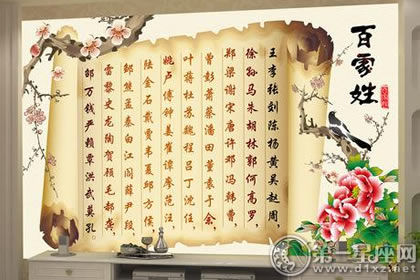 百家姓
王李张刘陈杨黄吴赵周,
徐孙马朱胡林郭何高罗,
郑梁谢宋唐许邓冯韩曹,
曾彭萧蔡潘田董袁于余,
叶蒋杜苏魏程吕丁沈任,
姚卢傅钟姜崔谭廖范汪,
陆金石戴贾韦夏邱方侯,
邹熊孟秦白江阎薛尹段,
雷黎史龙陶贺顾毛郝龚,
邵万钱严赖覃洪武莫孔。
第一星座网
www.d1xz.net